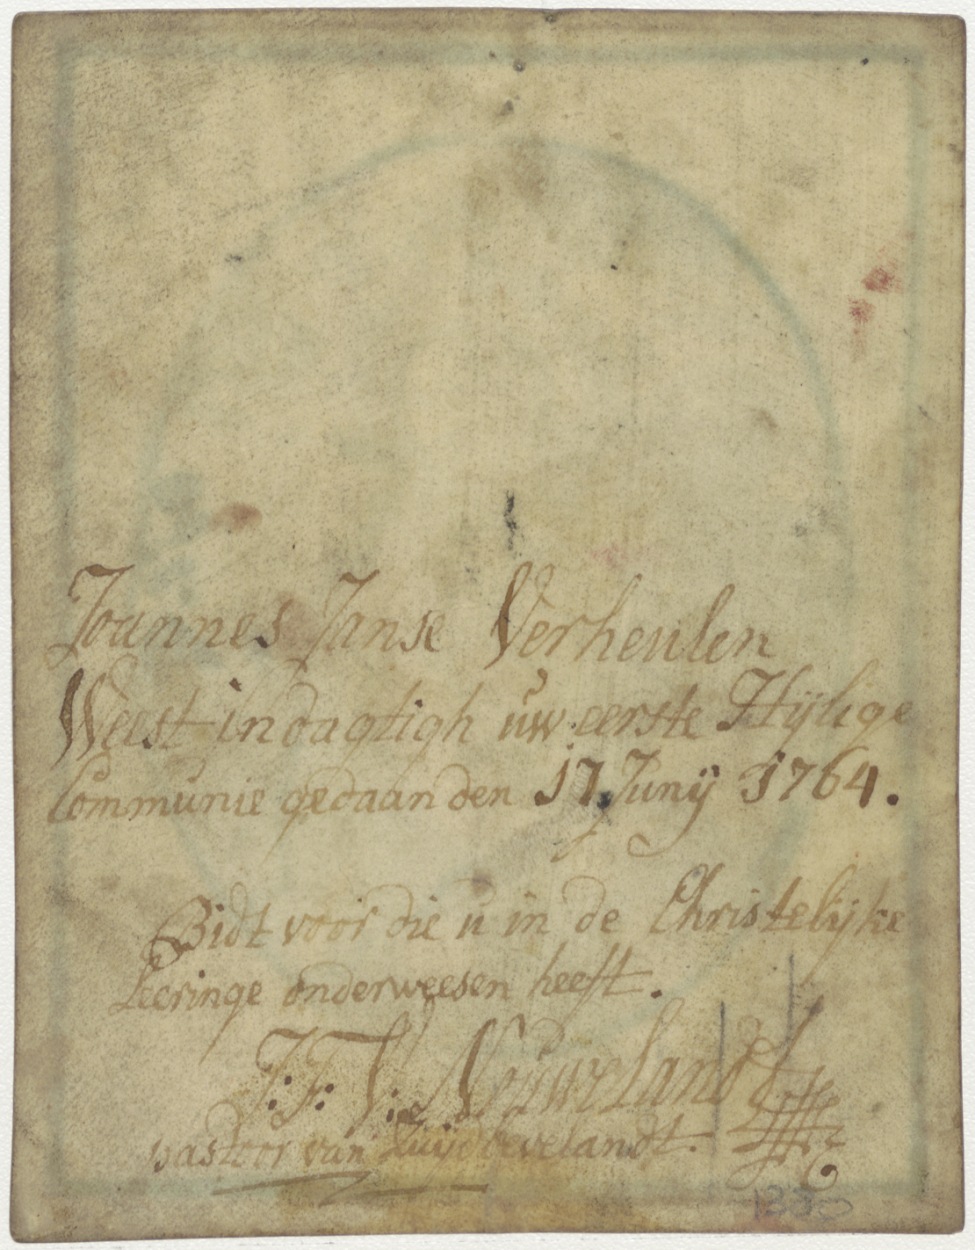 Joannes Janse Verheulen
Weest indagtigh uw eerste Hÿlige
Communie gedaan den 17 Junij 1764.
Bidt voor die u in de Christelijke
Leeringe onderweesen heeft.
J: F: V: Nouwelandt
pastoor van Zuijdbevelandt.
1330